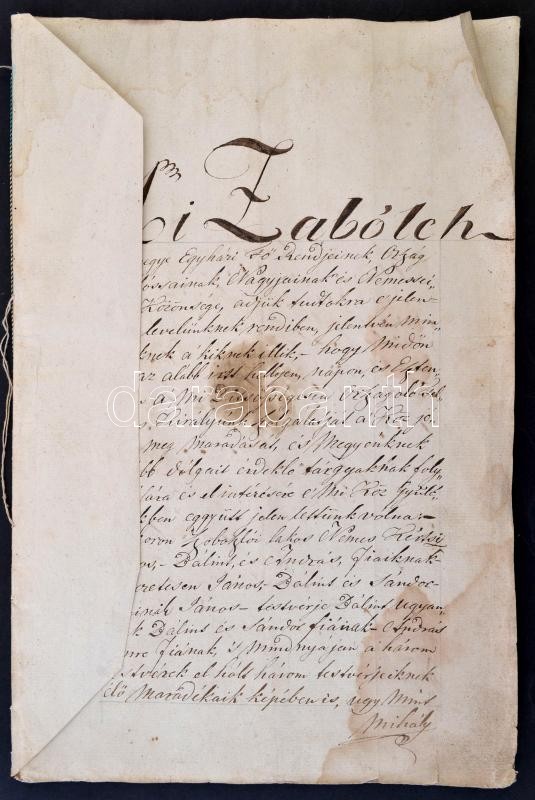 i Zabólch
egye Egyhári Fő Rendjeinek, Ország
ossainak, Nagyjainak és Nemessei„
Közönsége, adjuk tudtokra e jelen„
levelünknek rendiben, jelentvén min„
knek a kiknek illik,- hogy Midőn
az alább irtt hellyen, napon, és Eszten„
a Mi
Királyunk Szolgálatját a Köz jó
meg maradásat, és Megyénknek
bb dólgait érdeklő tárgyaknak foly„
ására és el intézésére e Mi Köz Gyűlé„
kben eggyütt jelen lettünk vólna-
koron lakos Nemes Kértsi
os,- Bálint, és András, Fiaiknak-
János, Bálint és Sándor
János- testvérje Bálint ugyan„
k Bálint és Sándor fiának- András
mre fiának, is mindnyájan a három
stvérek el hólt három testvérjeiknek
élő Maradékaik képében is, ugy Mint
Mihály
darabanth